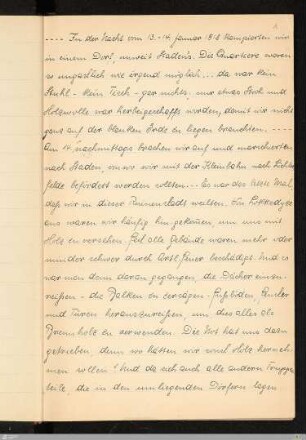 ---- In der Nacht vom 13.-14. Januar 1918 kampierten wir
in einem Dorf, unweit Staden's. Die Quartiere waren
so ungastlich wie irgend möglich ... da war kein
Stuhl - kein Tisch - gar nichts, nur etwas Stroh und
Holzwolle war herbeigeschafft worden, damit wir nicht
ganz auf der blanken Erde zu liegen brauchten. ----
Am 14. nachmittags brachen wir auf und marschierten
nach Staden, von wo wir mit der Kleinbahn nach
felde befördert werden sollten... Es war das letzte Mal,
daß wir in dieser Ruinenstadt weilten. Von
aus waren wir häufig hingekommen, um uns mit
Holz zu versehen. Fast alle Gebäude waren mehr oder
minder schwer durch Artl. Feuer beschädigt. Und so
war man denn daran gegangen, die Dächer einzu-
reißen - die Balken zu zersägen - Fußböden, Fenster
und Türen herauszureißen, um dies alles als
Brennholz zu verwenden. Die Not hat uns dazu
getrieben denn wo hätten wir sonst Holz herneh-
men sollen? Und da sich auch alle andern Truppen-
teile die in den umliegenden Dörfern lagen